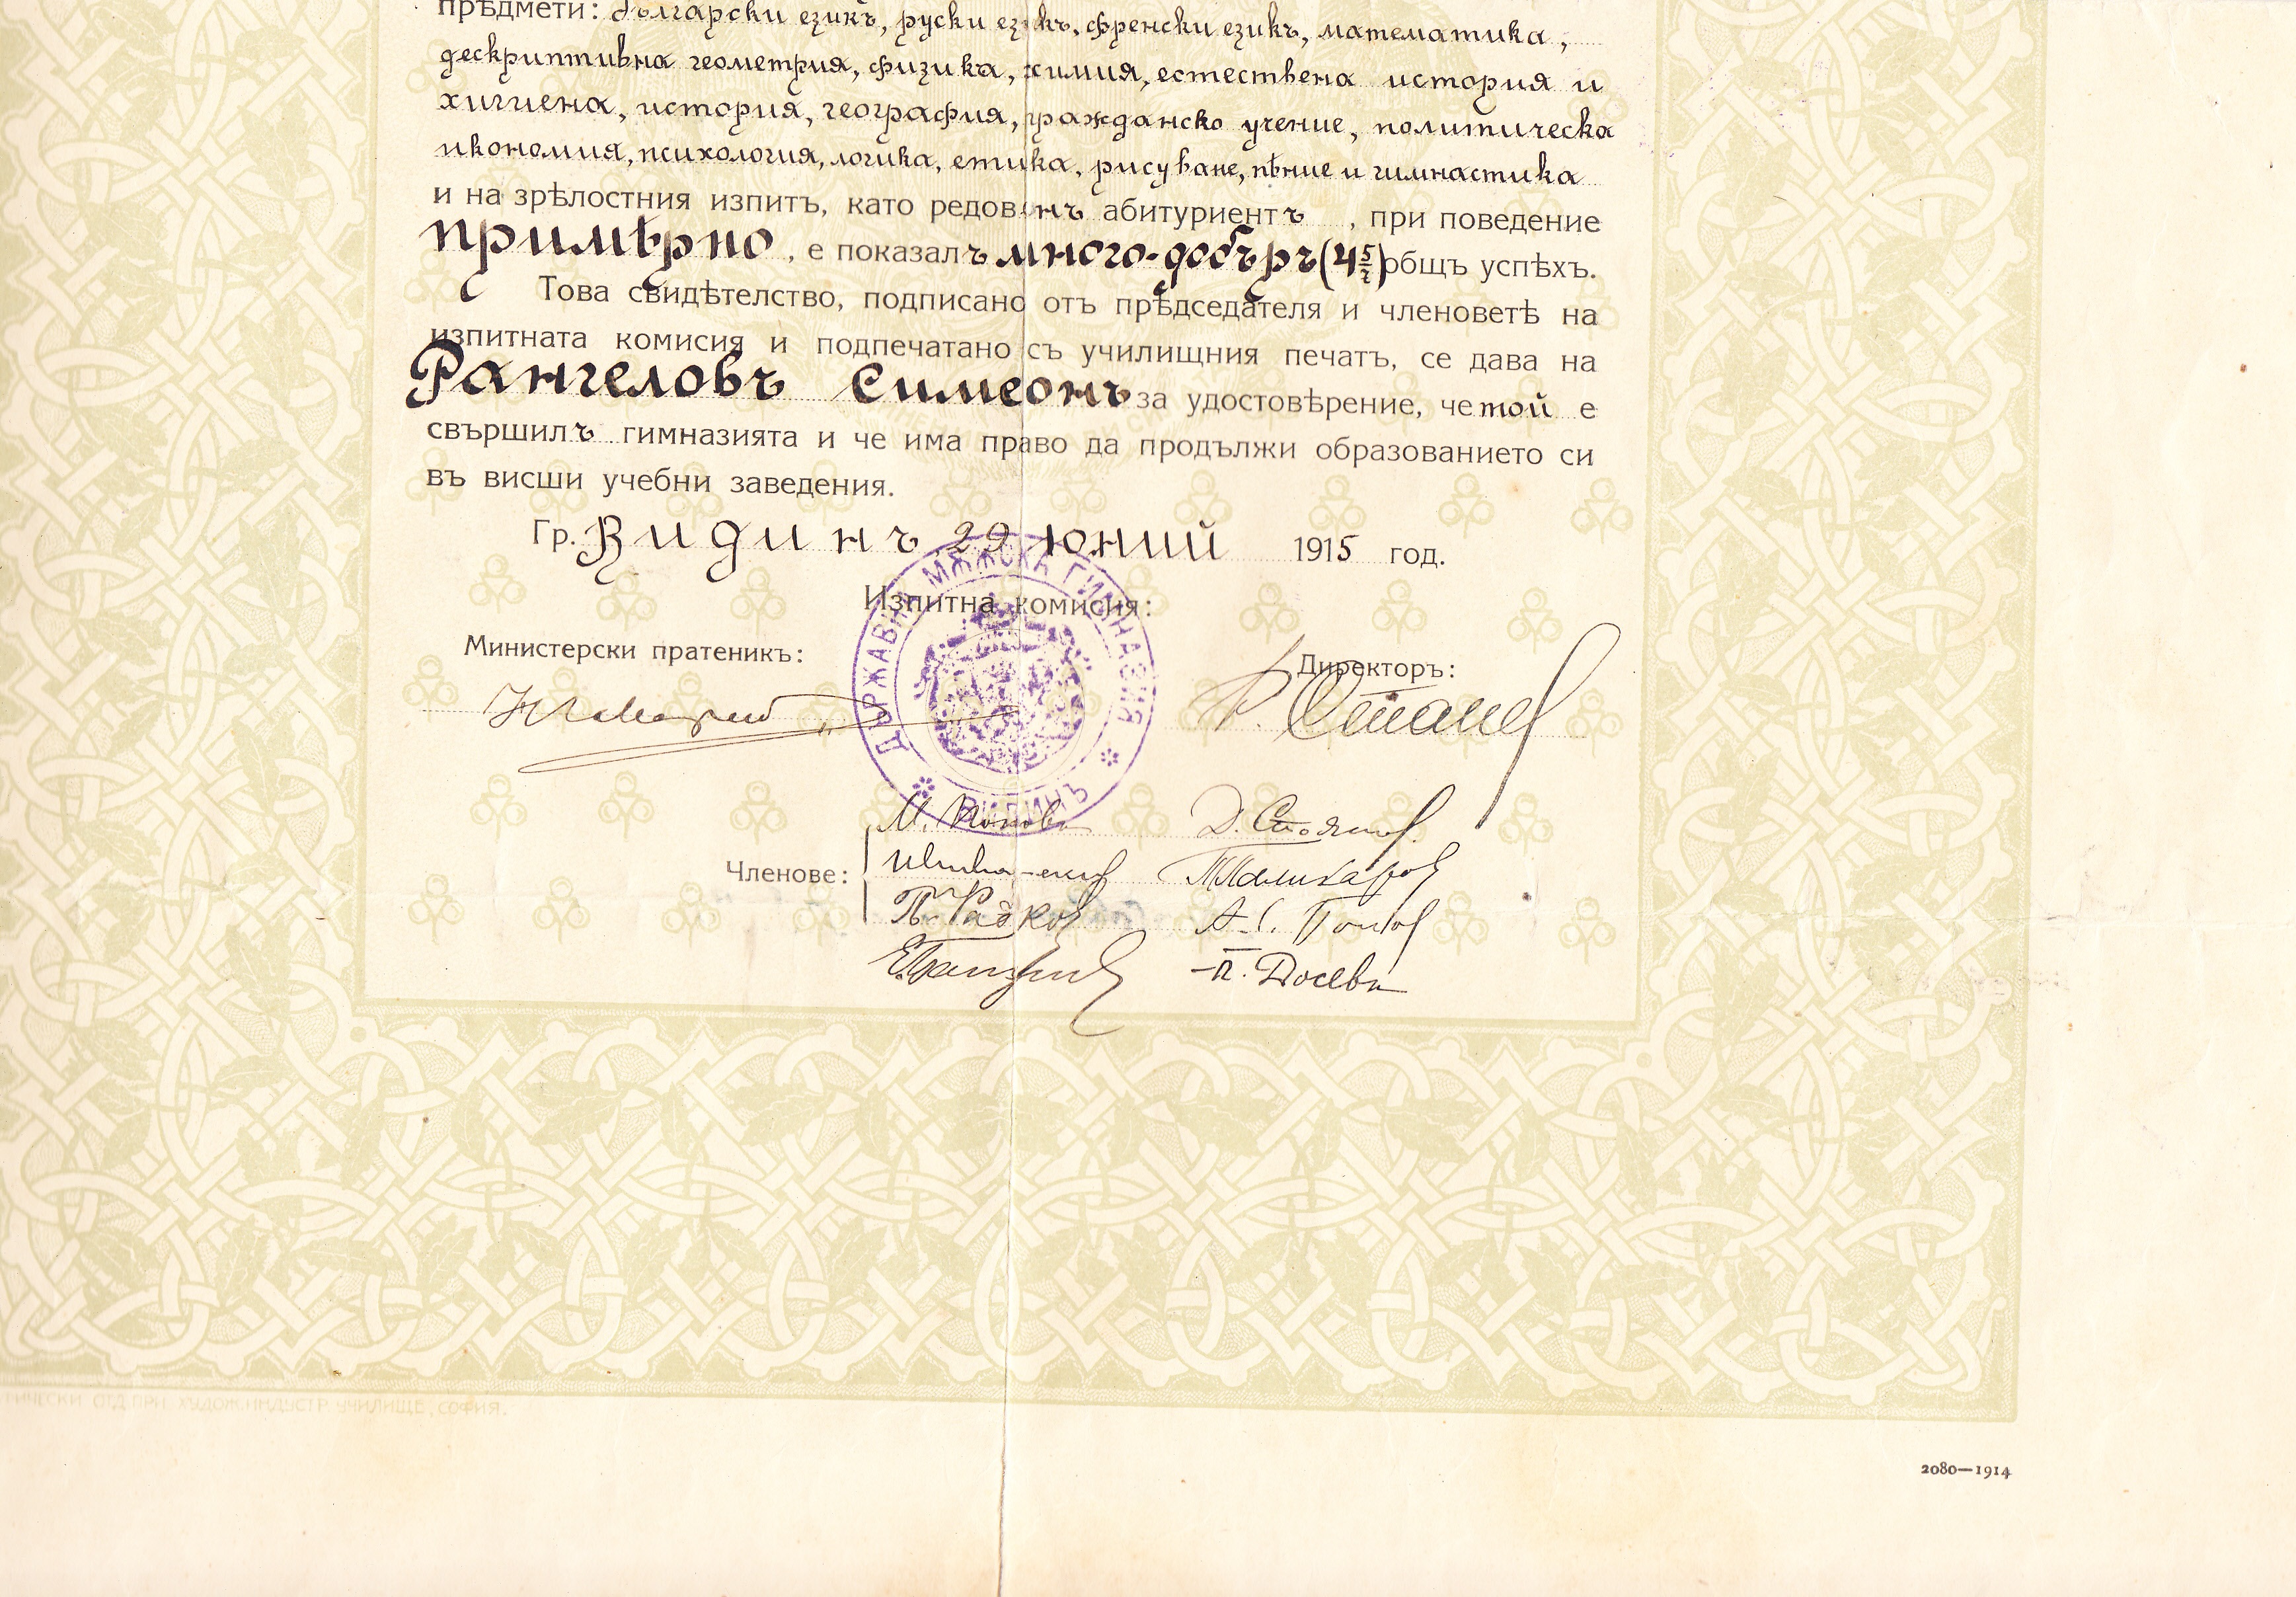 прѣдмети: български езикъ, руски езикъ, френски езикъ, математика,
дескриптивна геометрия, физика, химия, естествена история и
хигиена, история, география, гражданско учение, политическа
икономия, психология, логика, етика, рисуване, пѣние и гимнастика
и на зрѣлостния изпитъ, като редовенъ абитуриентъ , при поведение
примѣрно, е показалъ много-добъръ (4 5/7) общъ успѣхъ.
Това свидѣтелство, подписано отъ прѣдседателя и членоветѣ на
изпитната комисия и подпечатано съ училищния печатъ, се дава на
Рангеловъ Симеонъ за удостовѣрение, че той е
свършилъ гимназията и че има право да продължи образованието си
въ висши учебни заведения.
Гр. Видинъ 29 юний 1915 год.
ДЪРЖАВНА МѪЖСКА ГИМНАЗИЯ * ВИДИНЪ *
Изпитна комисия:
Министерски пратеникъ:
Директоръ:
М. Попова Д. Стоянов.
Членове:
П. Радков
П. Досева
ОТД. ПРИ ХУДОЖ. ИНДУСТР. УЧИЛИЩЕ, СОФИЯ.
2080—1914